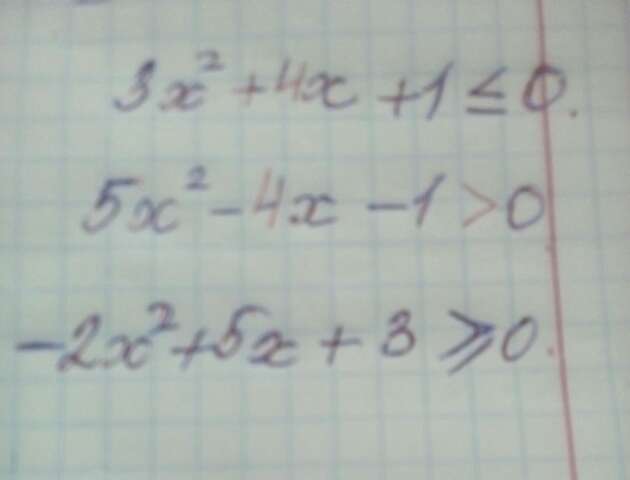 3x² + 4x + 1 ≤ 0.
5x² - 4x - 1 > 0
-2x² + 5x + 3 ≥ 0.